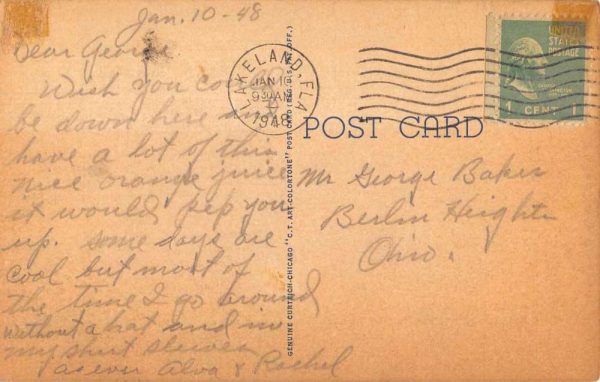 Jan. 10 - 48
Dear George
Wish you
be down here and
have a lot of this
nice orange juice
it would pep you
up. some days are
cool but most of
the time I go around
without a hat and in
my shirt sleeves
as ever Alva & Rachel
LAKELAND, FLA
JAN 1
9 30 AM
1948
UNITED
STATES
POSTAGE
1 CENT 1
POST CARD
Mr George Baker
Berlin Heights
Ohio.
GENUINE CURTEICH-CHICAGO "C.T. ART-COLORTONE" POST CARD (REG. U.S. PAT. OFF.)